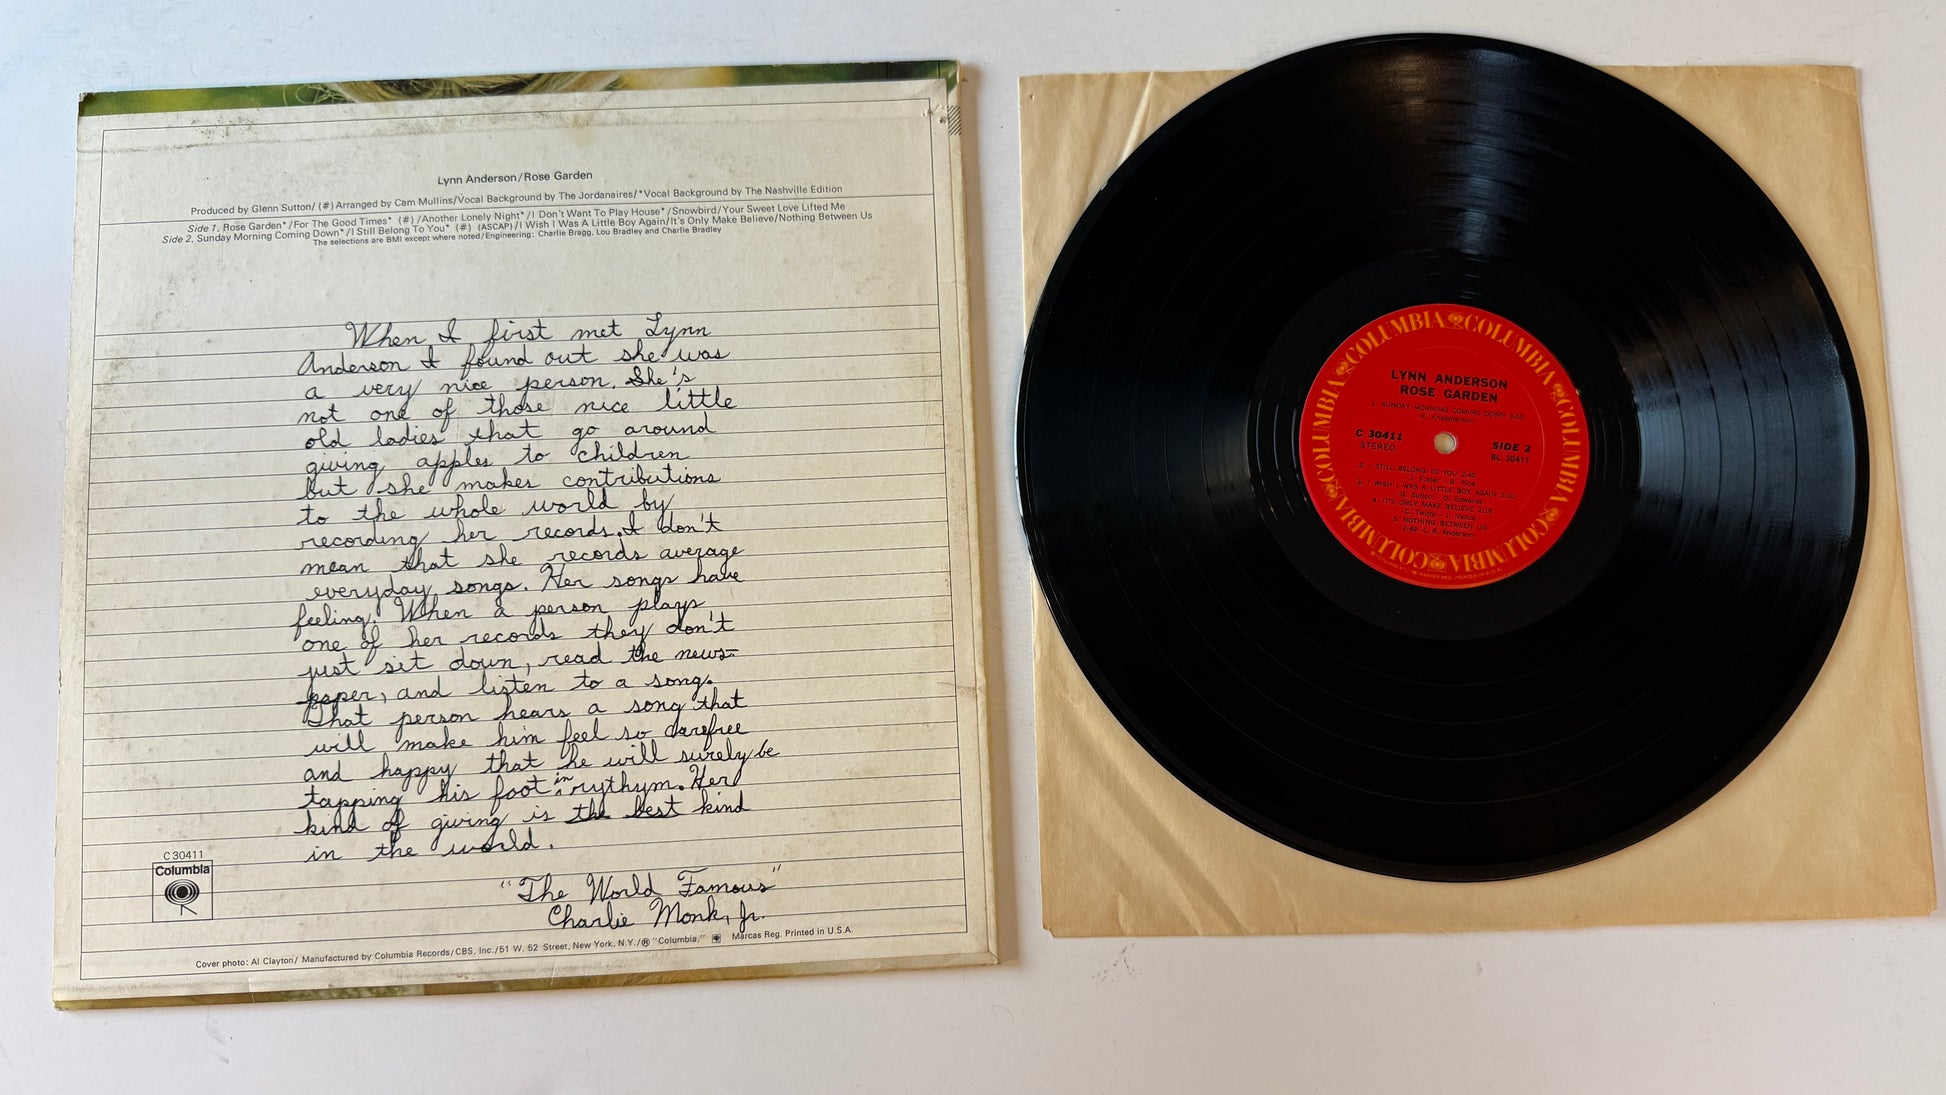 Lynn Anderson/Rose Garden
Produced by Glenn Sutton/ (#) Arranged by Cam Mullins/Vocal Background by The Jordanaires/*Vocal Background by The Nashville Edition
Side 1. Rose Garden*/For The Good Times* (#)/Another Lonely Night*/I Don't Want To Play House*/Snowbird/Your Sweet Love Lifted Me
Side 2. Sunday Morning Coming Down*/I Still Belong To You* (#) (ASCAP)/I Wish I Was A Little Boy Again/It's Only Make Believe/Nothing Between Us
The selections are BMI except where noted/Engineering: Charlie Bragg, Lou Bradley and Charlie Bradley
When I first met Lynn
Anderson I found out she was
a very nice person. She's
not one of those nice little
old ladies that go around
giving apples to children
but she makes contributions
to the whole world by
recording her records. I don't
mean that she records average
everyday songs. Her songs have
feeling. When a person plays
one of her records they don't
just sit down, read the news-
paper, and listen to a song.
That person hears a song that
will make him feel so carefree
and happy that he will surely be
tapping his foot in rythym. Her
kind of giving is the best kind
in the world.
"The World Famous"
Charlie Monk, Jr.
C 30411
Columbia
Cover photo: Al Clayton/ Manufactured by Columbia Records/CBS, Inc./51 W. 52 Street, New York, N.Y./® "Columbia," Marcas Reg. Printed in U.S.A.
COLUMBIA COLUMBIA COLUMBIA COLUMBIA COLUMBIA COLUMBIA
LYNN ANDERSON
ROSE GARDEN
1. SUNDAY MORNING COMING DOWN 3:53
-K. Kristofferson-
C 30411
STEREO
SIDE 2
BL 30411
2. I STILL BELONG TO YOU 2:40
-J. Foster - B. Rice-
3. I WISH I WAS A LITTLE BOY AGAIN 2:10
-G. Sutton - D. Edwards-
4. IT'S ONLY MAKE BELIEVE 2:19
-C. Twitty - J. Nance-
5. NOTHING BETWEEN US
2:49 -L. R. Anderson-
MARCAS REG. PRINTED IN U.S.A.